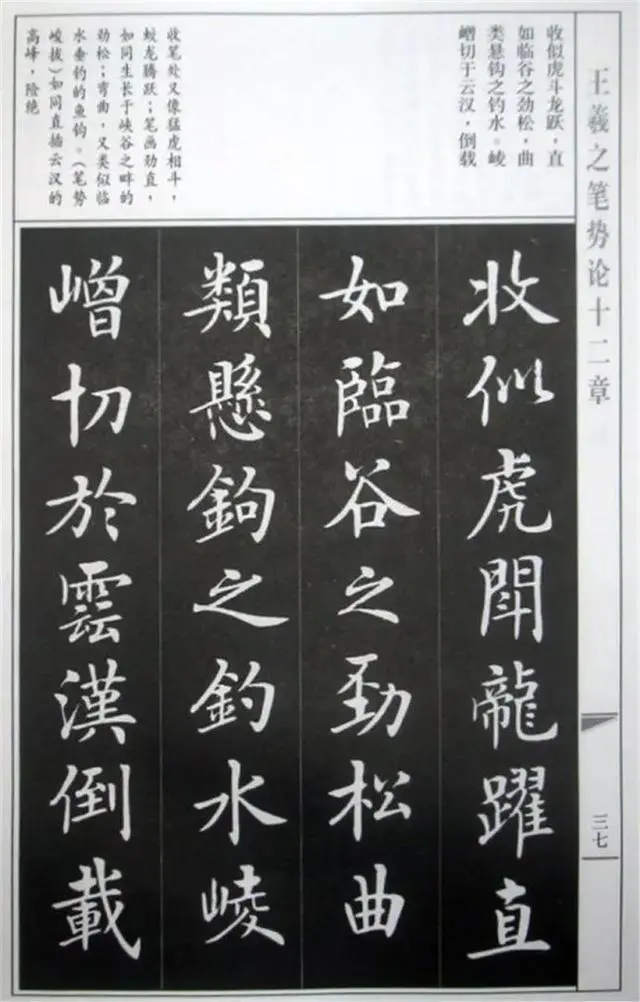 王羲之笔势论十二章
三七
收似虎斗龙跃，直
如临谷之劲松，曲
类悬钩之钓水。崚
嶒切于云汉，倒载
收笔处又像猛虎相斗，
蛟龙腾跃；笔画劲直，
如同生长于峡谷之畔的
劲松；弯曲，又类似临
水垂钓的鱼钩。（笔势
峻拔）如同直插云汉的
高峰，险绝
收似虎鬥龍躍直
如臨谷之勁松曲
類懸鉤之釣水崚
嶒切於雲漢倒載